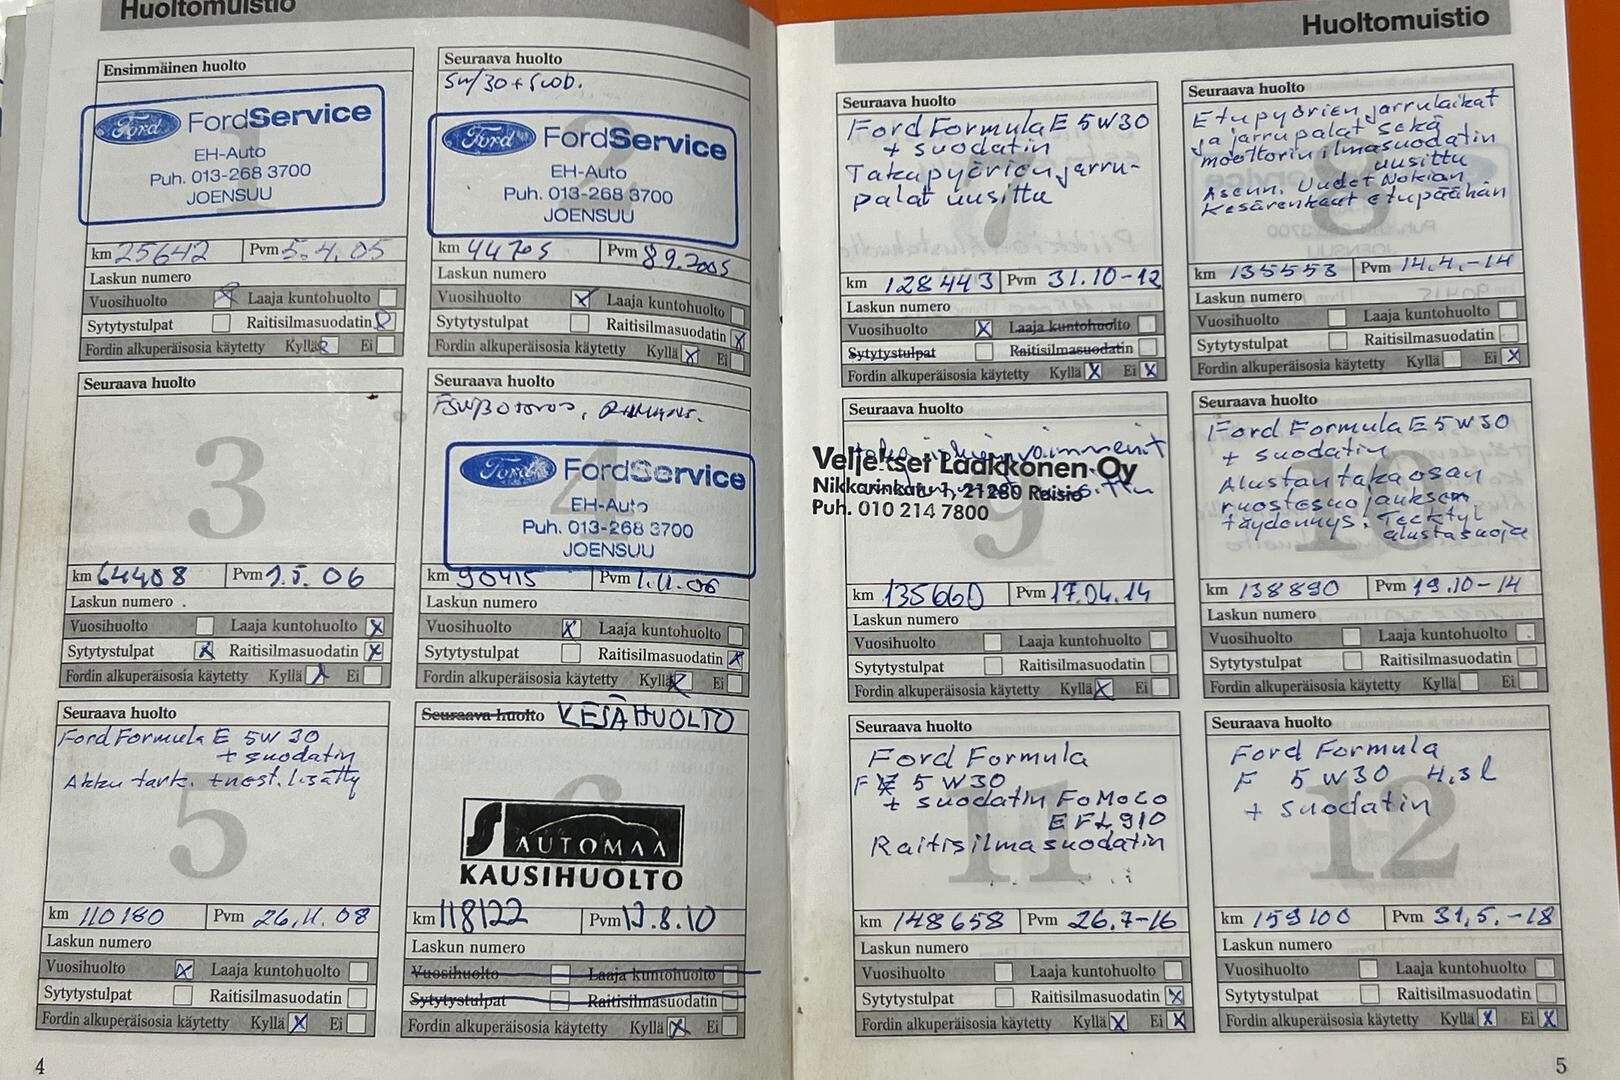 Huoltomuistio
Ensimmäinen huolto
1
Ford FordService
EH-Auto
Puh. 013-268 3700
JOENSUU
km 25642 Pvm 5.4.05
Laskun numero
Vuosihuolto Laaja kuntohuolto
Sytytystulpat Raitisilmasuodatin
Fordin alkuperäisosia käytetty Kyllä Ei
Seuraava huolto
5w/30 +
2
Ford FordService
EH-Auto
Puh. 013-268 3700
JOENSUU
km 44705 Pvm 8.9.2005
Laskun numero
Vuosihuolto Laaja kuntohuolto
Sytytystulpat Raitisilmasuodatin
Fordin alkuperäisosia käytetty Kyllä Ei
Seuraava huolto
3
km 64408 Pvm 1.5.06
Laskun numero
Vuosihuolto Laaja kuntohuolto
Sytytystulpat Raitisilmasuodatin
Fordin alkuperäisosia käytetty Kyllä Ei
Seuraava huolto
4
Ford FordService
EH-Auto
Puh. 013-268 3700
JOENSUU
km 90415 Pvm 1.11.06
Laskun numero
Vuosihuolto Laaja kuntohuolto
Sytytystulpat Raitisilmasuodatin
Fordin alkuperäisosia käytetty Kyllä Ei
Seuraava huolto
Ford Formula E 5W30
+ suodatin
Akku tark. + nest. lisätty
5
km 110180 Pvm 26.11.08
Laskun numero
Vuosihuolto Laaja kuntohuolto
Sytytystulpat Raitisilmasuodatin
Fordin alkuperäisosia käytetty Kyllä Ei
Seuraava huolto KESÄHUOLTO
6
AUTOMAA
KAUSIHUOLTO
km 118122 Pvm 12.8.10
Laskun numero
Vuosihuolto Laaja kuntohuolto
Sytytystulpat Raitisilmasuodatin
Fordin alkuperäisosia käytetty Kyllä Ei
4
Huoltomuistio
Seuraava huolto
Ford Formula E 5W30
+ suodatin
Takapyörien jarru-
palat uusittu
7
km 128443 Pvm 31.10-12
Laskun numero
Vuosihuolto Laaja kuntohuolto
Sytytystulpat Raitisilmasuodatin
Fordin alkuperäisosia käytetty Kyllä Ei
Seuraava huolto
Etupyörien jarrulaikat
ja jarrupalat sekä
moottorin ilmasuodatin
uusittu
Asenn. Uudet Nokian
Kesärenkaat etupäähän
8
km 135553 Pvm 14.4.-14
Laskun numero
Vuosihuolto Laaja kuntohuolto
Sytytystulpat Raitisilmasuodatin
Fordin alkuperäisosia käytetty Kyllä Ei
Seuraava huolto
Veljekset Laakkonen Oy
Nikkarinkatu 1, 21280 Raisio
Puh. 010 214 7800
9
km 135660 Pvm 17.04.14
Laskun numero
Vuosihuolto Laaja kuntohuolto
Sytytystulpat Raitisilmasuodatin
Fordin alkuperäisosia käytetty Kyllä Ei
Seuraava huolto
Ford Formula E 5W30
+ suodatin
Alustan takaosan
ruostesuojauksen
täydennys. Tectyl
alustasuoja
10
km 138890 Pvm 19.10-14
Laskun numero
Vuosihuolto Laaja kuntohuolto
Sytytystulpat Raitisilmasuodatin
Fordin alkuperäisosia käytetty Kyllä Ei
Seuraava huolto
Ford Formula
F 5W30
+ suodatin FoMoCo
EFL910
Raitisilmasuodatin
11
km 148658 Pvm 26.7-16
Laskun numero
Vuosihuolto Laaja kuntohuolto
Sytytystulpat Raitisilmasuodatin
Fordin alkuperäisosia käytetty Kyllä Ei
Seuraava huolto
Ford Formula
F 5W30 4,3l
+ suodatin
12
km 159100 Pvm 31.5.-18
Laskun numero
Vuosihuolto Laaja kuntohuolto
Sytytystulpat Raitisilmasuodatin
Fordin alkuperäisosia käytetty Kyllä Ei
5